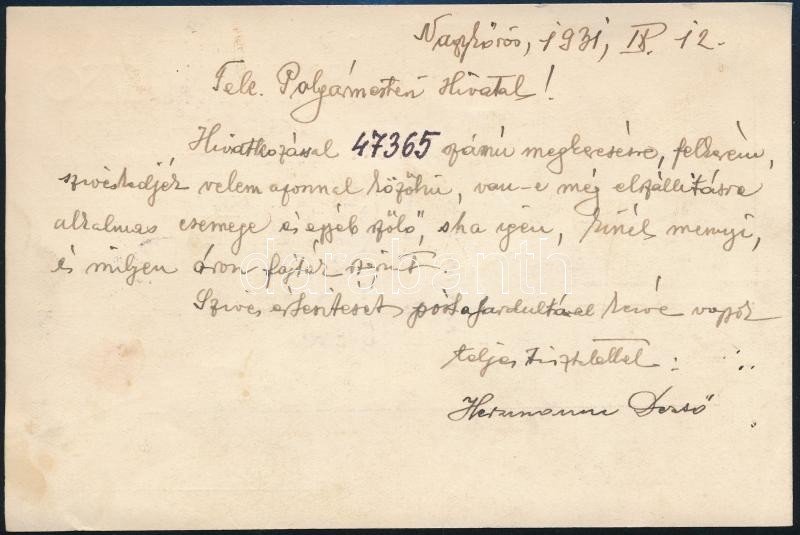 Nagykőrös, 1931, IX. 12.
Tek. Polgármesteri Hivatal!
Hivatkozással 47365 számú megkeresésre, felkérem,
sziveskedjék velem azonnal közölni, van-e még elszállitásra
alkalmas csemege és egyéb szőlő, s ha igen, kinél mennyi,
és milyen áron fajták szerint.
Szives értesitését postafordultával kérve vagyok
teljes tisztelettel:
Herzmann Dezső
darabanth